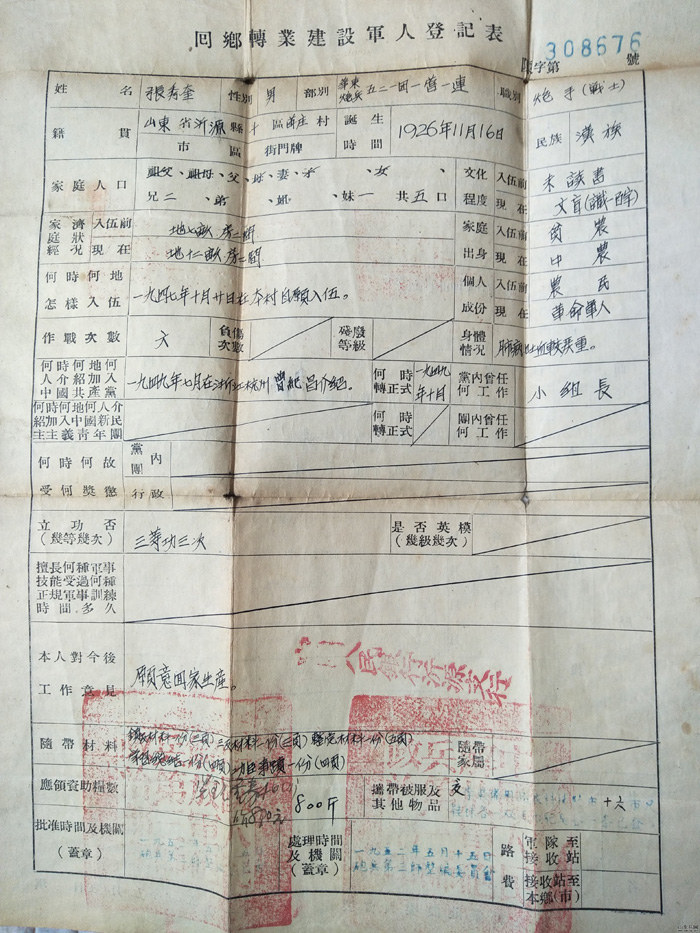 回鄉轉業建設軍人登記表
308676
字第 號
姓名 張寿奎 性別 男 部別 華東炮兵五二一团一营一連 職別 炮手(战士)
籍貫 山東省沂源縣 十區 庄村 誕生時間 1926年11月16日 民族 漢族
市 區 街門牌
家庭人口 祖父、祖母、父、母、妻、子、女、 文化程度 入伍前 未讀書
兄二、弟、姐、妹一 共五口 現在 文盲
家庭經濟狀況 入伍前 地七畝 房二間 家庭出身 入伍前 貧農
現在 地十二畝 房二間 現在 中農
何時何地怎樣入伍 一九四七年十月廿日在本村自願入伍。 個人成份 入伍前 農民
現在 革命軍人
作戰次數 六 負傷次數 殘廢等級 身體情況
何時何地何人介紹加入中國共產黨 一九四九年七月在浙江杭州曾紀昌介紹。 何時轉正式 一九四九年十月 黨內曾任何工作 小組長
何時何地何人介紹加入中國新民主主義青年團 何時轉正式 團內曾任何工作
何時何故受何獎懲 黨團內
行政
立功否(幾等幾次) 三等功三次 是否英模(幾級幾次)
擅長何種軍事技能受過何種正規軍事訓練時間多久
本人對今後工作意見 願意回家生産。
人民銀行沂源支行
隨帶材料 隨帶家屬
應領資助糧數 1800斤 攜帶被服及其他物品
批准時間及機關(蓋章) 處理時間及機關(蓋章) 一九五二年五月十五日 路費 軍隊至接收站
接收站至本鄉(市)